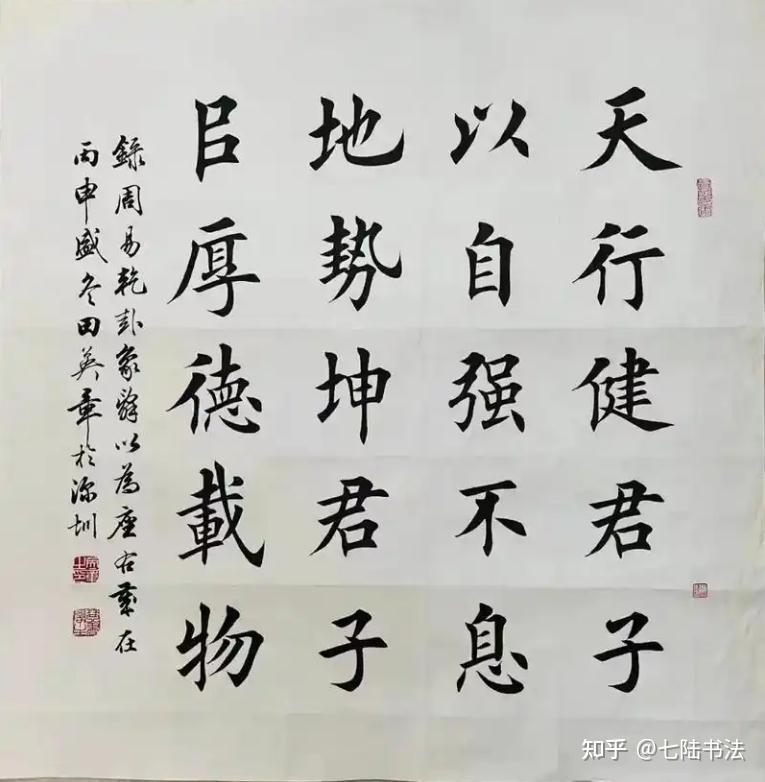 天行健君子
以自强不息
地勢坤君子
㠯厚德載物
錄周易乾卦象辭以為座右歲在
丙申盛冬田英章於深圳
知乎 @七陆书法